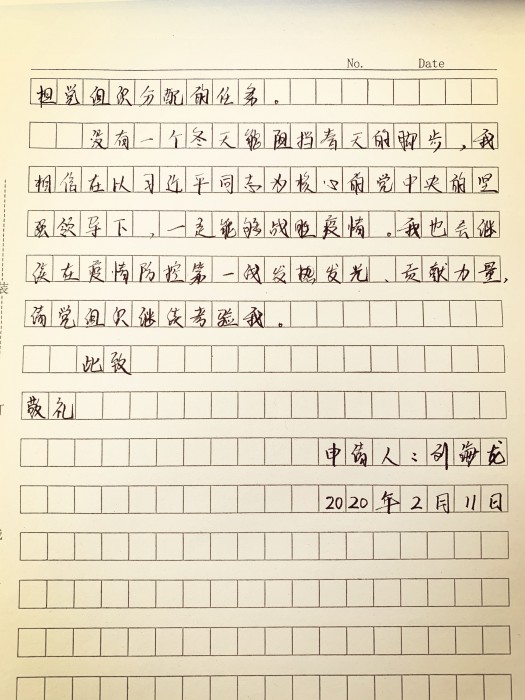 No. Date
担党组织分配的任务。
没有一个冬天能阻挡春天的脚步，我
相信在以习近平同志为核心的党中央的坚
强领导下，一定能够战胜疫情。我也会继
续在疫情防控第一线发热发光、贡献力量，
请党组织继续考验我。
此致
敬礼
申请人：刘海龙
2020年2月11日
装
订